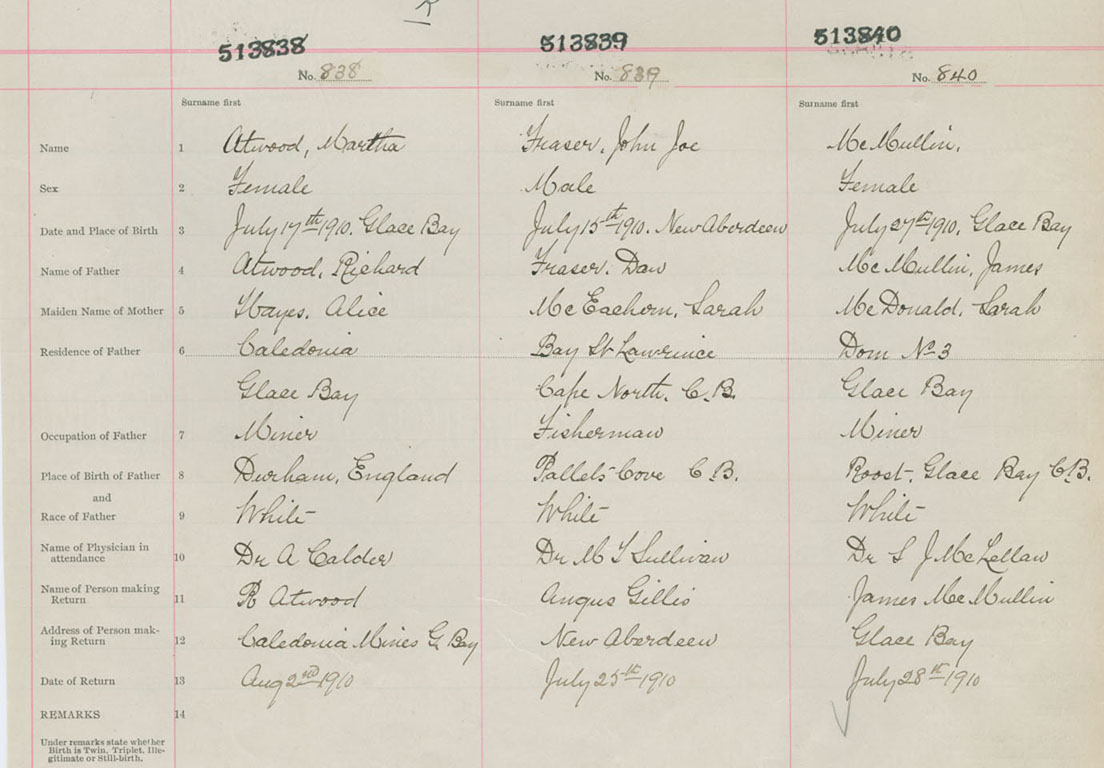 513838 513839 513840
No. 838 No. 839 No. 840
Surname first Surname first Surname first
Name 1 Atwood, Martha Fraser, John Joe McMullin,
Sex 2 Female Male Female
Date and Place of Birth 3 July 17th 1910. Glace Bay July 15th 1910. New Aberdeen July 27th 1910. Glace Bay
Name of Father 4 Atwood, Richard Fraser, Dan McMullin, James
Maiden Name of Mother 5 Hayes, Alice McEachern, Sarah McDonald, Sarah
Residence of Father 6 Caledonia Bay St Lawrence Dom No 3
Glace Bay Cape North. C.B. Glace Bay
Occupation of Father 7 Miner Fisherman Miner
Place of Birth of Father 8 Durham, England Cove C.B. Roost, Glace Bay C.B.
and
Race of Father 9 White White White
Name of Physician in
attendance 10 Dr A Calder Dr M T Sullivan Dr S J McLellan
Name of Person making
Return 11 R Atwood Angus Gillis James McMullin
Address of Person mak-
ing Return 12 Caledonia Mines G Bay New Aberdeen Glace Bay
Date of Return 13 Aug 2nd 1910 July 25th 1910 July 28th 1910
REMARKS 14
Under remarks state whether
Birth is Twin, Triplet, Ille-
gitimate or Still-birth.